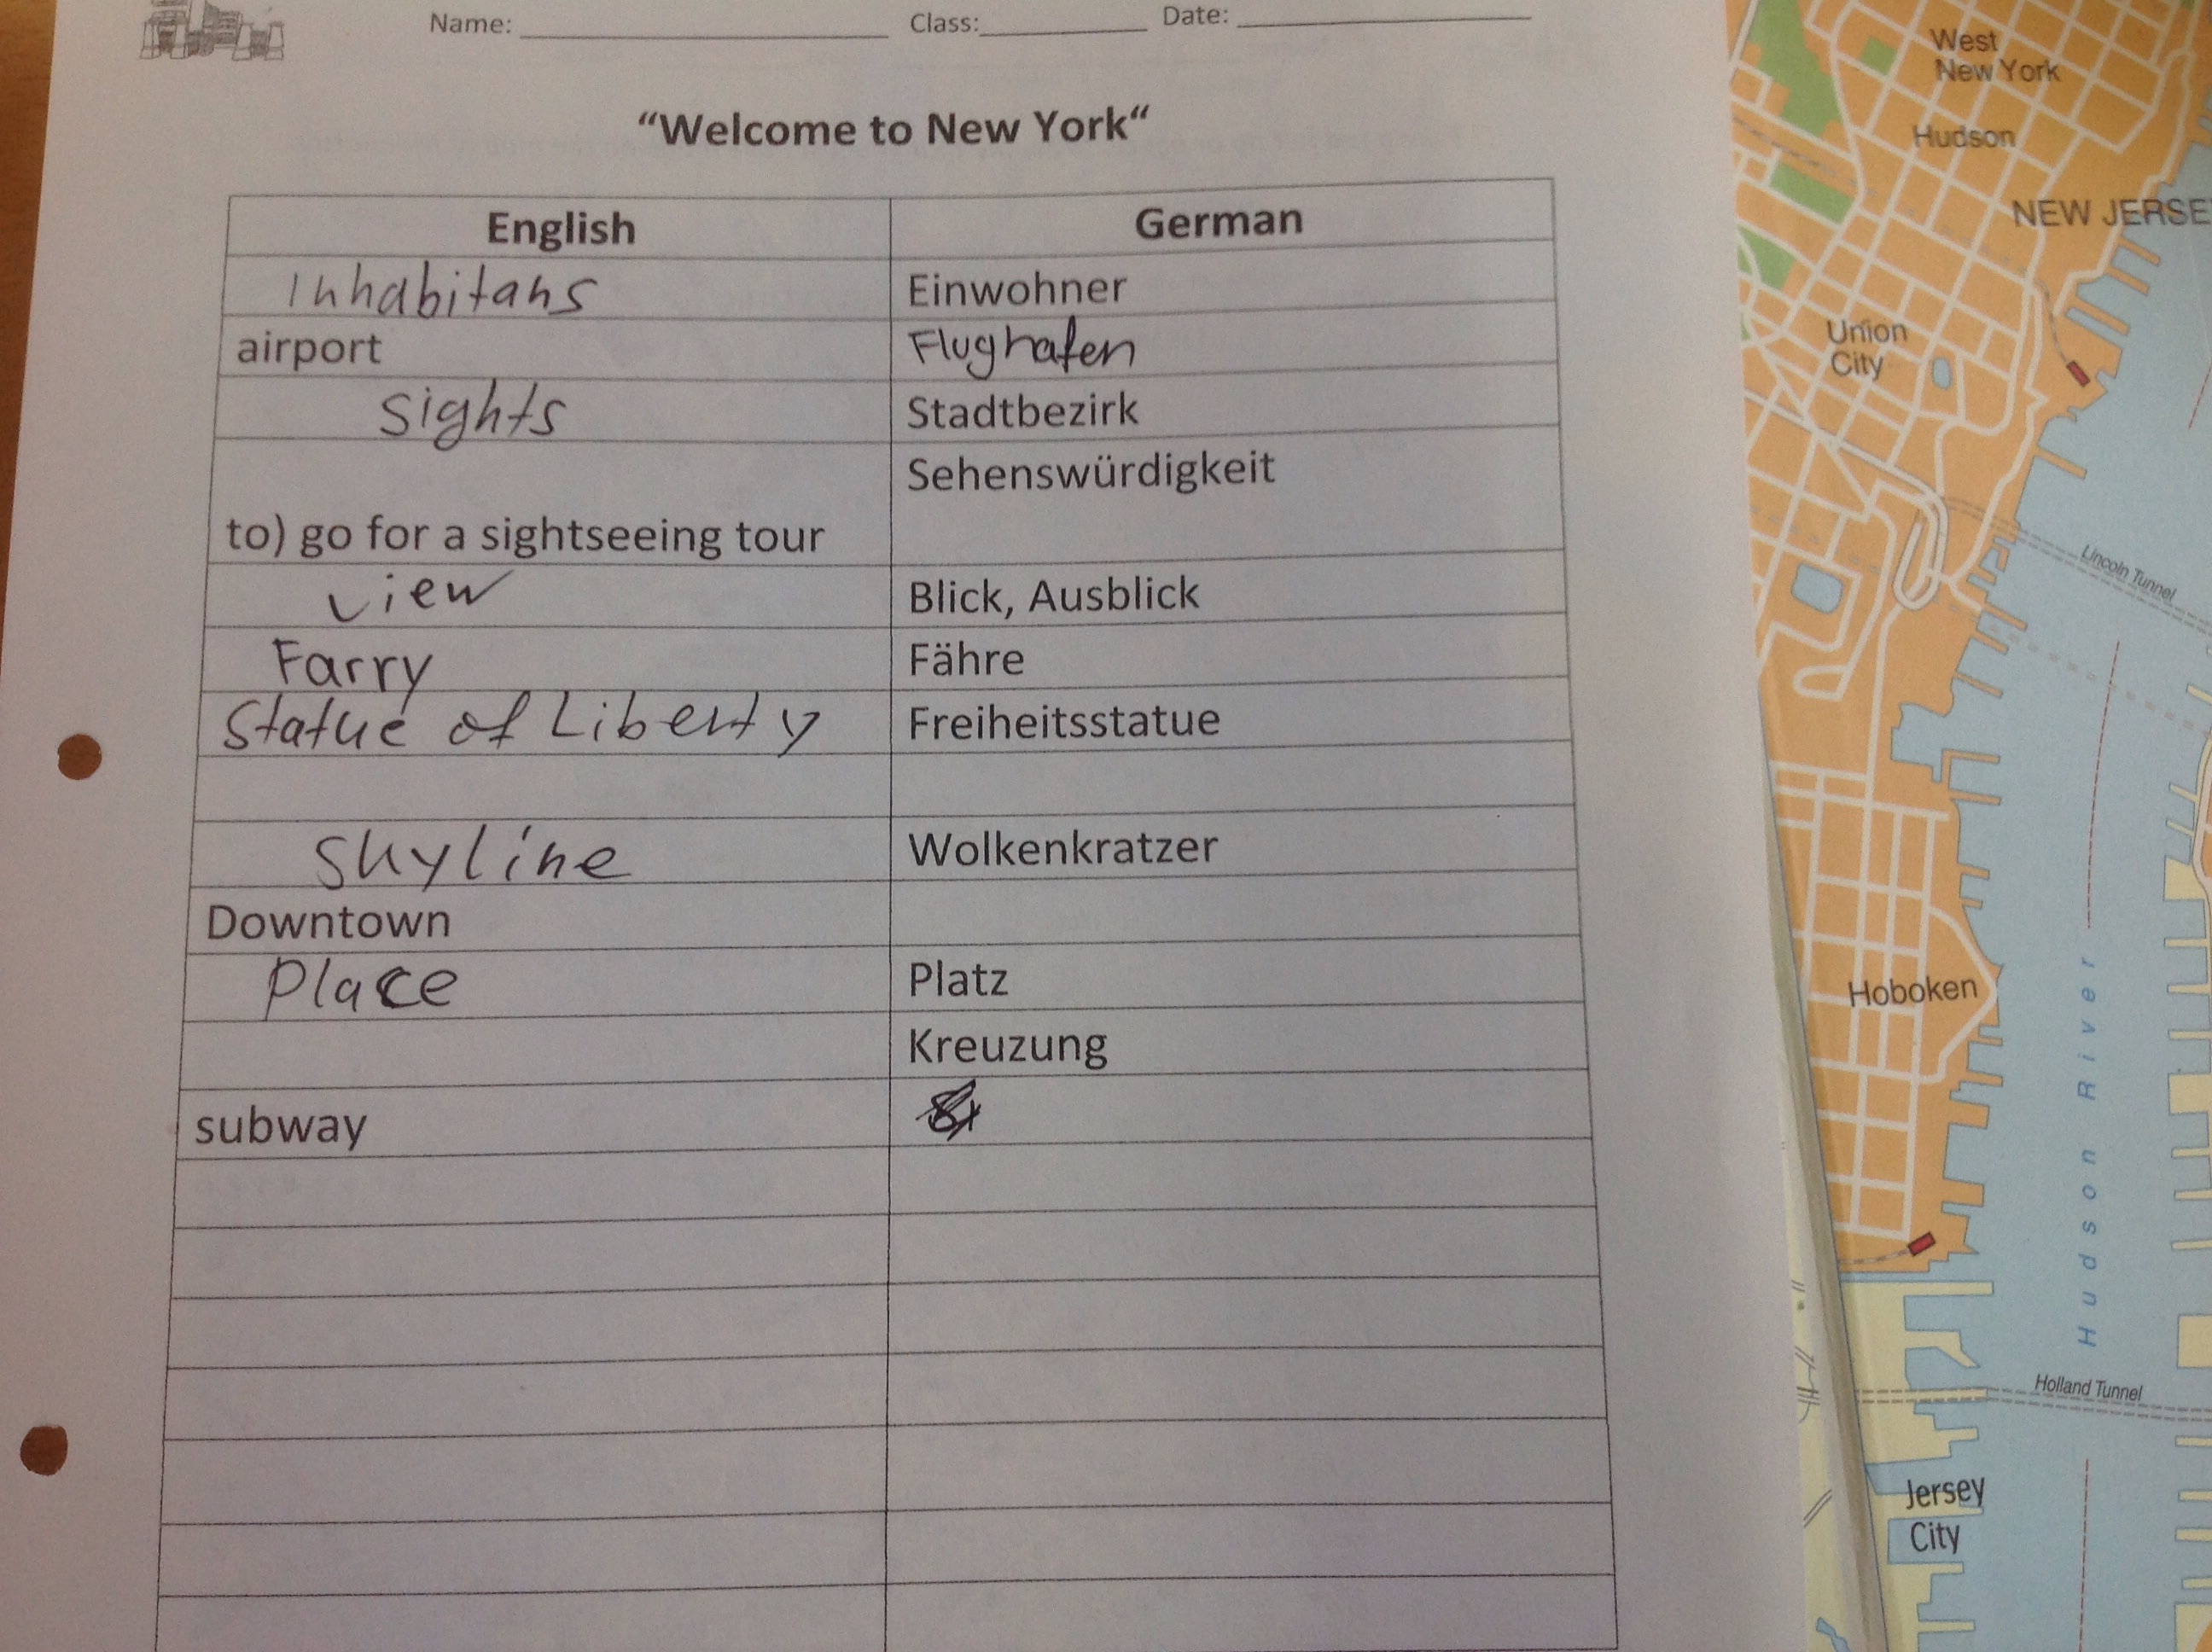 Name: Class: Date:
“Welcome to New York“
English German
Inhabitans Einwohner
airport Flughafen
Sights Stadtbezirk
Sehenswürdigkeit
to) go for a sightseeing tour
view Blick, Ausblick
Farry Fähre
Statue of Liberty Freiheitsstatue
Skyline Wolkenkratzer
Downtown
Place Platz
Kreuzung
subway
West
New York
Hudson
NEW JERSE
Union
City
Lincoln Tunnel
Hoboken
Hudson River
Holland Tunnel
Jersey
City